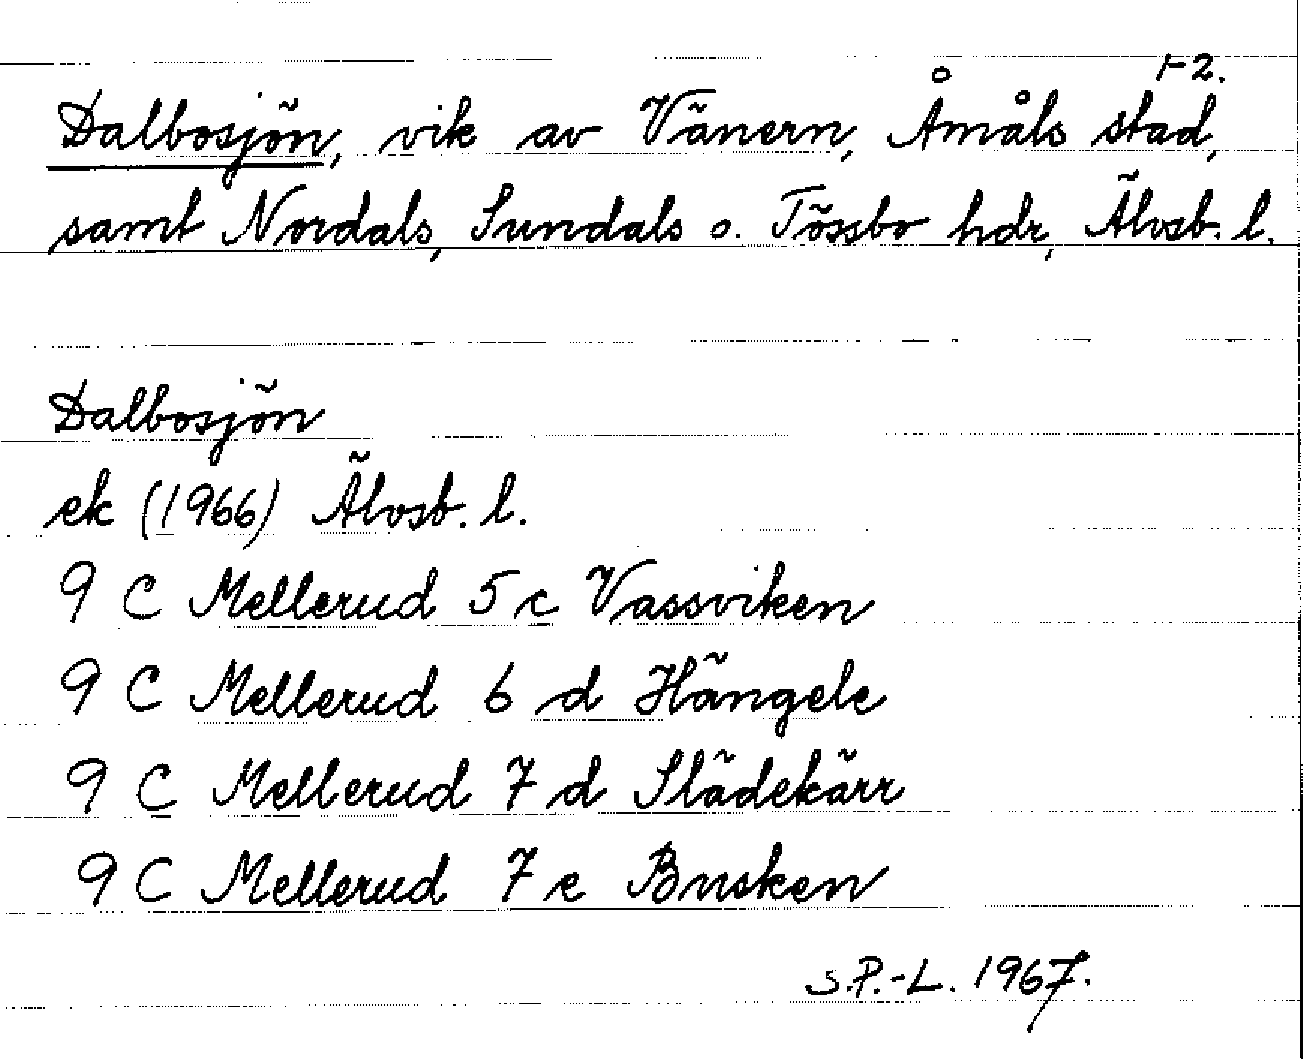 1-2.
Dalbosjön, vik av Vänern, Åmåls stad,
samt Nordals, Sundals o. Tössbo hdr, Älvsb. l.
Dalbosjön
ek (1966) Älvsb. l.
9 C Mellerud 5 c Vassviken
9 C Mellerud 6 d Hängele
9 C Mellerud 7 d Slädekärr
9 C Mellerud 7 e Busken
S.P.-L. 1967.